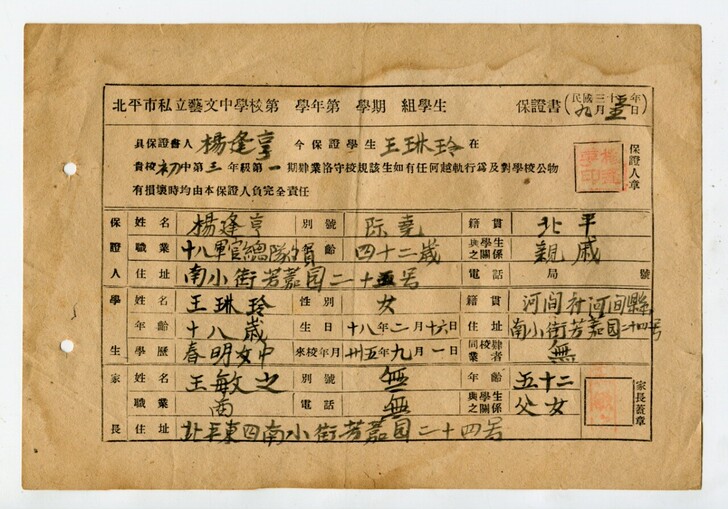 北平市私立藝文中學校第 學年第 學期 組學生 保證書(民國三十五年九月 日)
具保證書人楊逢亨今保證學生王琳玲在
貴校初中第三年級第一期肄業恪守校規該生如有任何越軌行為及對學校公物
有損壞時均由本保證人負完全責任
保證人章
保證人 姓名 楊逢亨 別號 際堯 籍貫 北平
職業 十八軍官總隊 年齡 四十二歲 與學生之關係 親戚
住址 南小街芳嘉园二十五号 電話 局 號
學生 姓名 王琳玲 性別 女 籍貫 河間村河間縣
年齡 十八歲 生日 十八年二月十六日 住址 南小街芳嘉园二十四号
學歷 春明女中 來校年月 卅五年九月一日 同校肄業者 無
家長 姓名 王敏之 別號 無 年齡 五十二
職業 商 電話 無 與學生之關係 父女
家長蓋章
住址 北平東四南小街芳嘉园二十四号